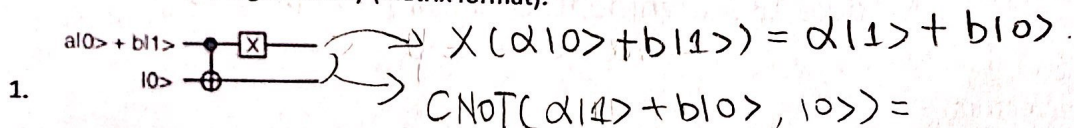 a|0> + b|1>
X
|0>
1.
X(α|0> + b|1>) = α|1> + b|0>.
CNOT(α|1> + b|0>, |0>) =